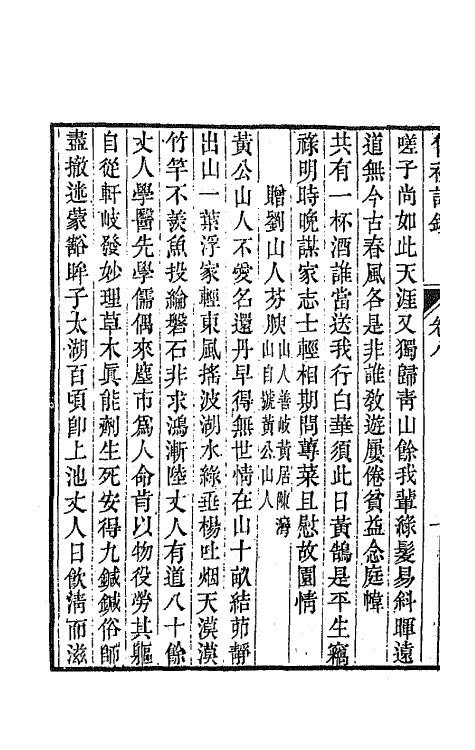 嗟子尚如此天涯又獨歸青山餘我輩綠髮易斜暉遠
道無今古春風各是非誰敎遊屢倦貧益念庭幃
共有一杯酒誰當送我行白華須此日黃鵠是平生竊
祿明時晚謀家志士輕相期問蓴菜且慰故園情
贈劉山人芬腴山人善岐黃居陳灣山自號黃公山人
黃公山人不愛名還丹早得無世情在山十畝結茆靜
出山一葉浮家輕東風搖波湖水綠垂楊吐烟天漠漠
竹竿不羨魚投綸磐石非求鴻漸陸丈人有道八十餘
丈人學醫先學儒偶來塵市爲人命肯以物役勞其軀
自從軒岐發妙理草木眞能劑生死安得九鍼鍼俗師
盡撤逃蒙豁眸子太湖百頃卽上池丈人日飲淸而滋